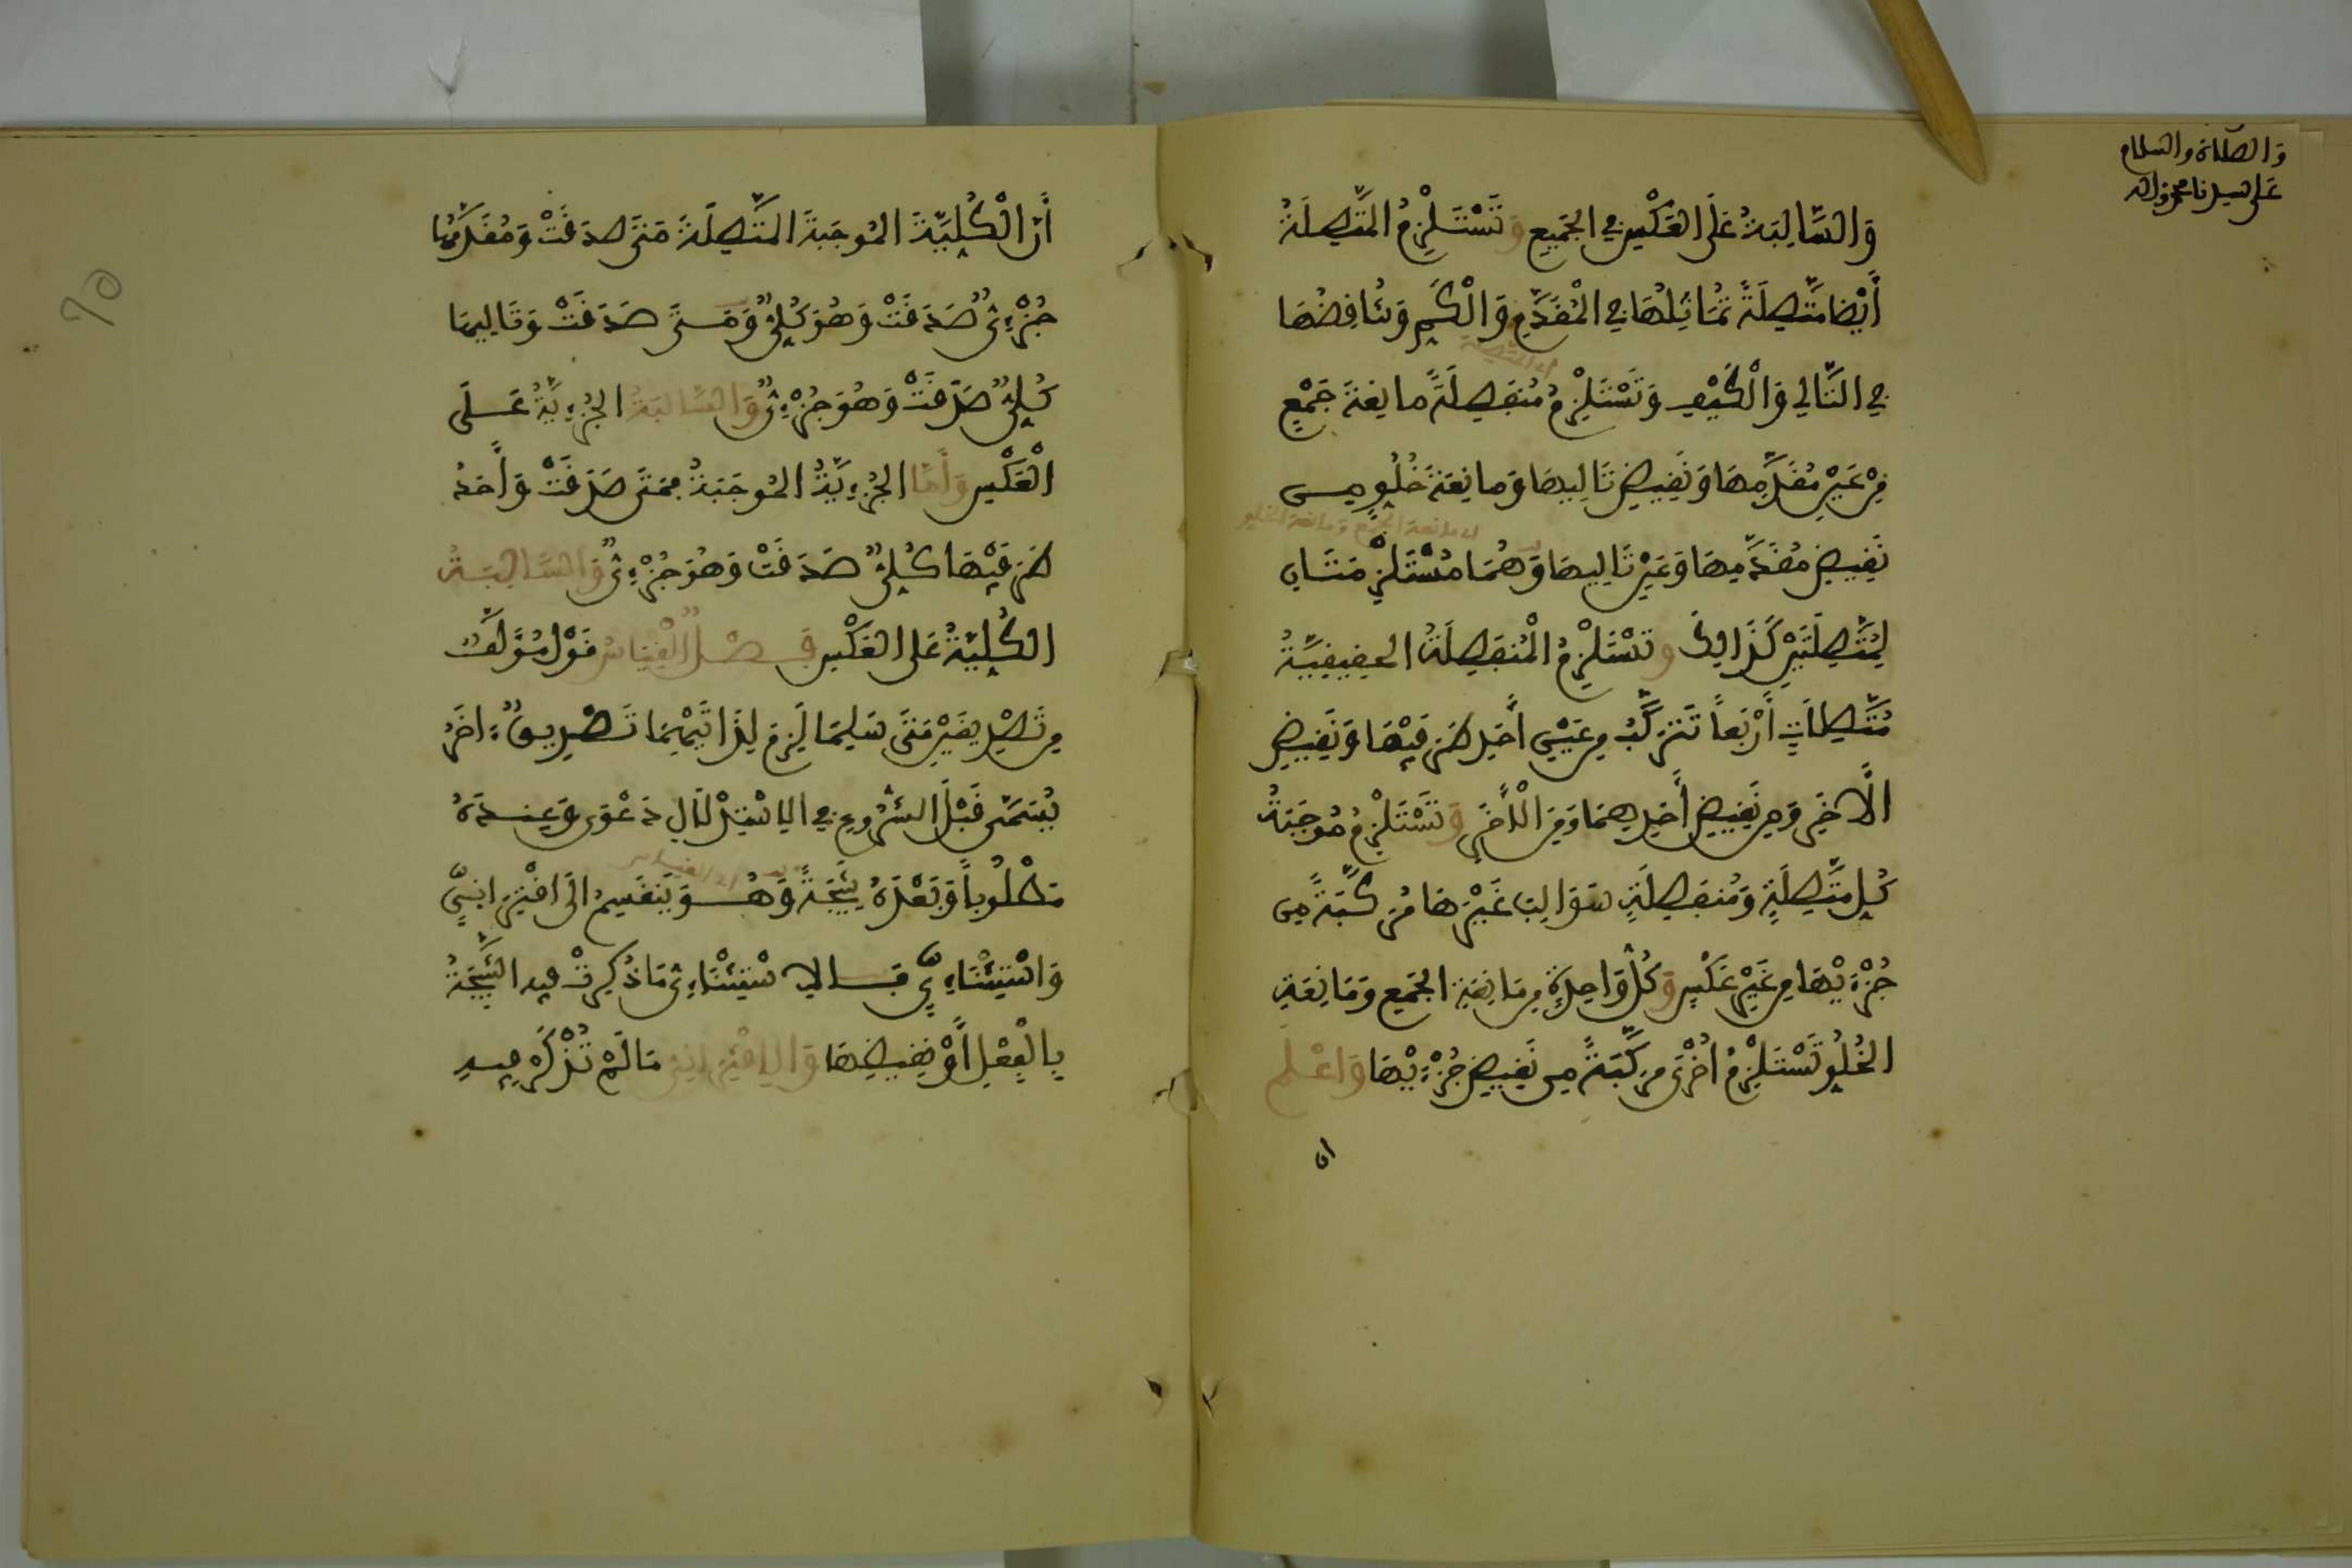 وَالصَّلَاة والسلام
عَلى سيدنا محمد وءاله
وَالسَّالِبَةُ عَلَى الْعَكْسِ فِي الْجَمِيعِ وَتَسْتَلْزِمُ الْمُتَّصِلَةُ
أَيْضا مُتَّصِلَةً تُمَاثِلُهَا فِي الْمُقَدَّمِ وَالْكَمِّ وَتُنَاقِضُهَا
فِي التَّالِي وَالْكَيْفِ وَتَسْتَلْزِمُ مُنْفَصِلَةً مانِعَةَ جَمْعٍ
أي المتصلة
مِنْ عَيْنِ مُقَدَّمِهَا وَنَقِيضِ تَالِيهَا وَمانِعَةَ خُلُوٍّ مِن
نَقِيضِ مُقَدَّمِهَا وَعَيْنِ تَالِيهَا وَهُمَا مُسْتَلْزِمَتَانِ
أي مانعة الجمع ومانعة الخلو
لِمُتَّصِلَتَيْنِ كَذَالِكَ وتَسْتَلْزِمُ الْمُنْفَصِلَةُ الحَقِيقِيَّةُ
مُتَّصِلَاتٍ أَرْبَعاً تَتَرَكَّبُ مِن عَيْنِ أَحَدِ طَرَفَيْهَا وَنَقِيضِ
الْأَخَرِ وَمِن نَقِيضِ أَحَدِهِمَا وَعَيْنِ الْأَخَرِ وَتَسْتَلْزِمُ مُوجَبَةُ
كُلِّ مُتَّصِلَةٍ وَمُنفَصِلَةٍ سَوَالِبَ غَيْرِهَا مُرَكَّبَةً مِن
جُزْءَيْهَا مِن غَيْرِ عَكْسٍ وَكُلُّ وَاحِدَةٍ مِن مَانِعَةِ الجَمْعِ وَمَانِعَةِ
الخُلُوِّ تَسْتَلْزِمُ أُخْرَى مُرَكَّبَةً مِن نَقِيضِ جُزْءَيْهَا وَاعْلَم
ان
أَنَّ الْكُلِّيَّةَ الْمُوجَبَةَ الْمُتَّصِلَةَ مَتَى صَدَقَتْ وَمُقَدَّمُهَا
جُزْءِىٌّ صَدَقَتْ وَهُوَ كُلِّىٌّ وَمَتَى صَدَقَتْ وَتَالِيهَا
كُلِّىٌّ صَدَقَتْ وَهُوَ جُزْءِىٌّ وَالسَّالِبَةُ الجُزْءِيَّةُ عَلَى
الْعَكْسِ وَأَمَّا الجُزْءِيَّةُ المُوجَبَةُ فَمَتَى صَدَقَتْ وَأَحَدُ
طَرَفَيْهَا كُلِّىٌّ صَدَقَتْ وَهُوَ جُزْءِىٌّ وَالسَّالِبَةُ
الْكُلِّيَّةُ عَلى الْعَكْسِ فَصْلٌ الْقِيَاسُ قَوْلٌ مُؤَلَّفٌ
مِن تَصْدِيقَيْنِ مَتَى سُلِّمَا لَزِمَ لِذَاتَيْهِمَا تَصْدِيقٌ ءاخَرُ
يُسَمَّى قَبْلَ الشُّرُوعِ فِي الِاسْتِدْلَالِ دَعْوَى وَعِندَهُ
مَطْلُوباً وَبَعْدَهُ نَتِيجَةً وَهُوَ يَنقَسِمُ الَى اقْتِرَانِيٍّ
أي القياس
وَاسْتِثْنَاءِيٍّ فَالِاسْتِثْنَاءِى مَا ذُكِرَتْ فِيهِ النَّتِيجَةُ
بِالْفِعْلِ أَوْ نَقِيضِهَا وَالِاقْتِرَانِى مَا لَمْ تُذْكَرْ فِيهِ